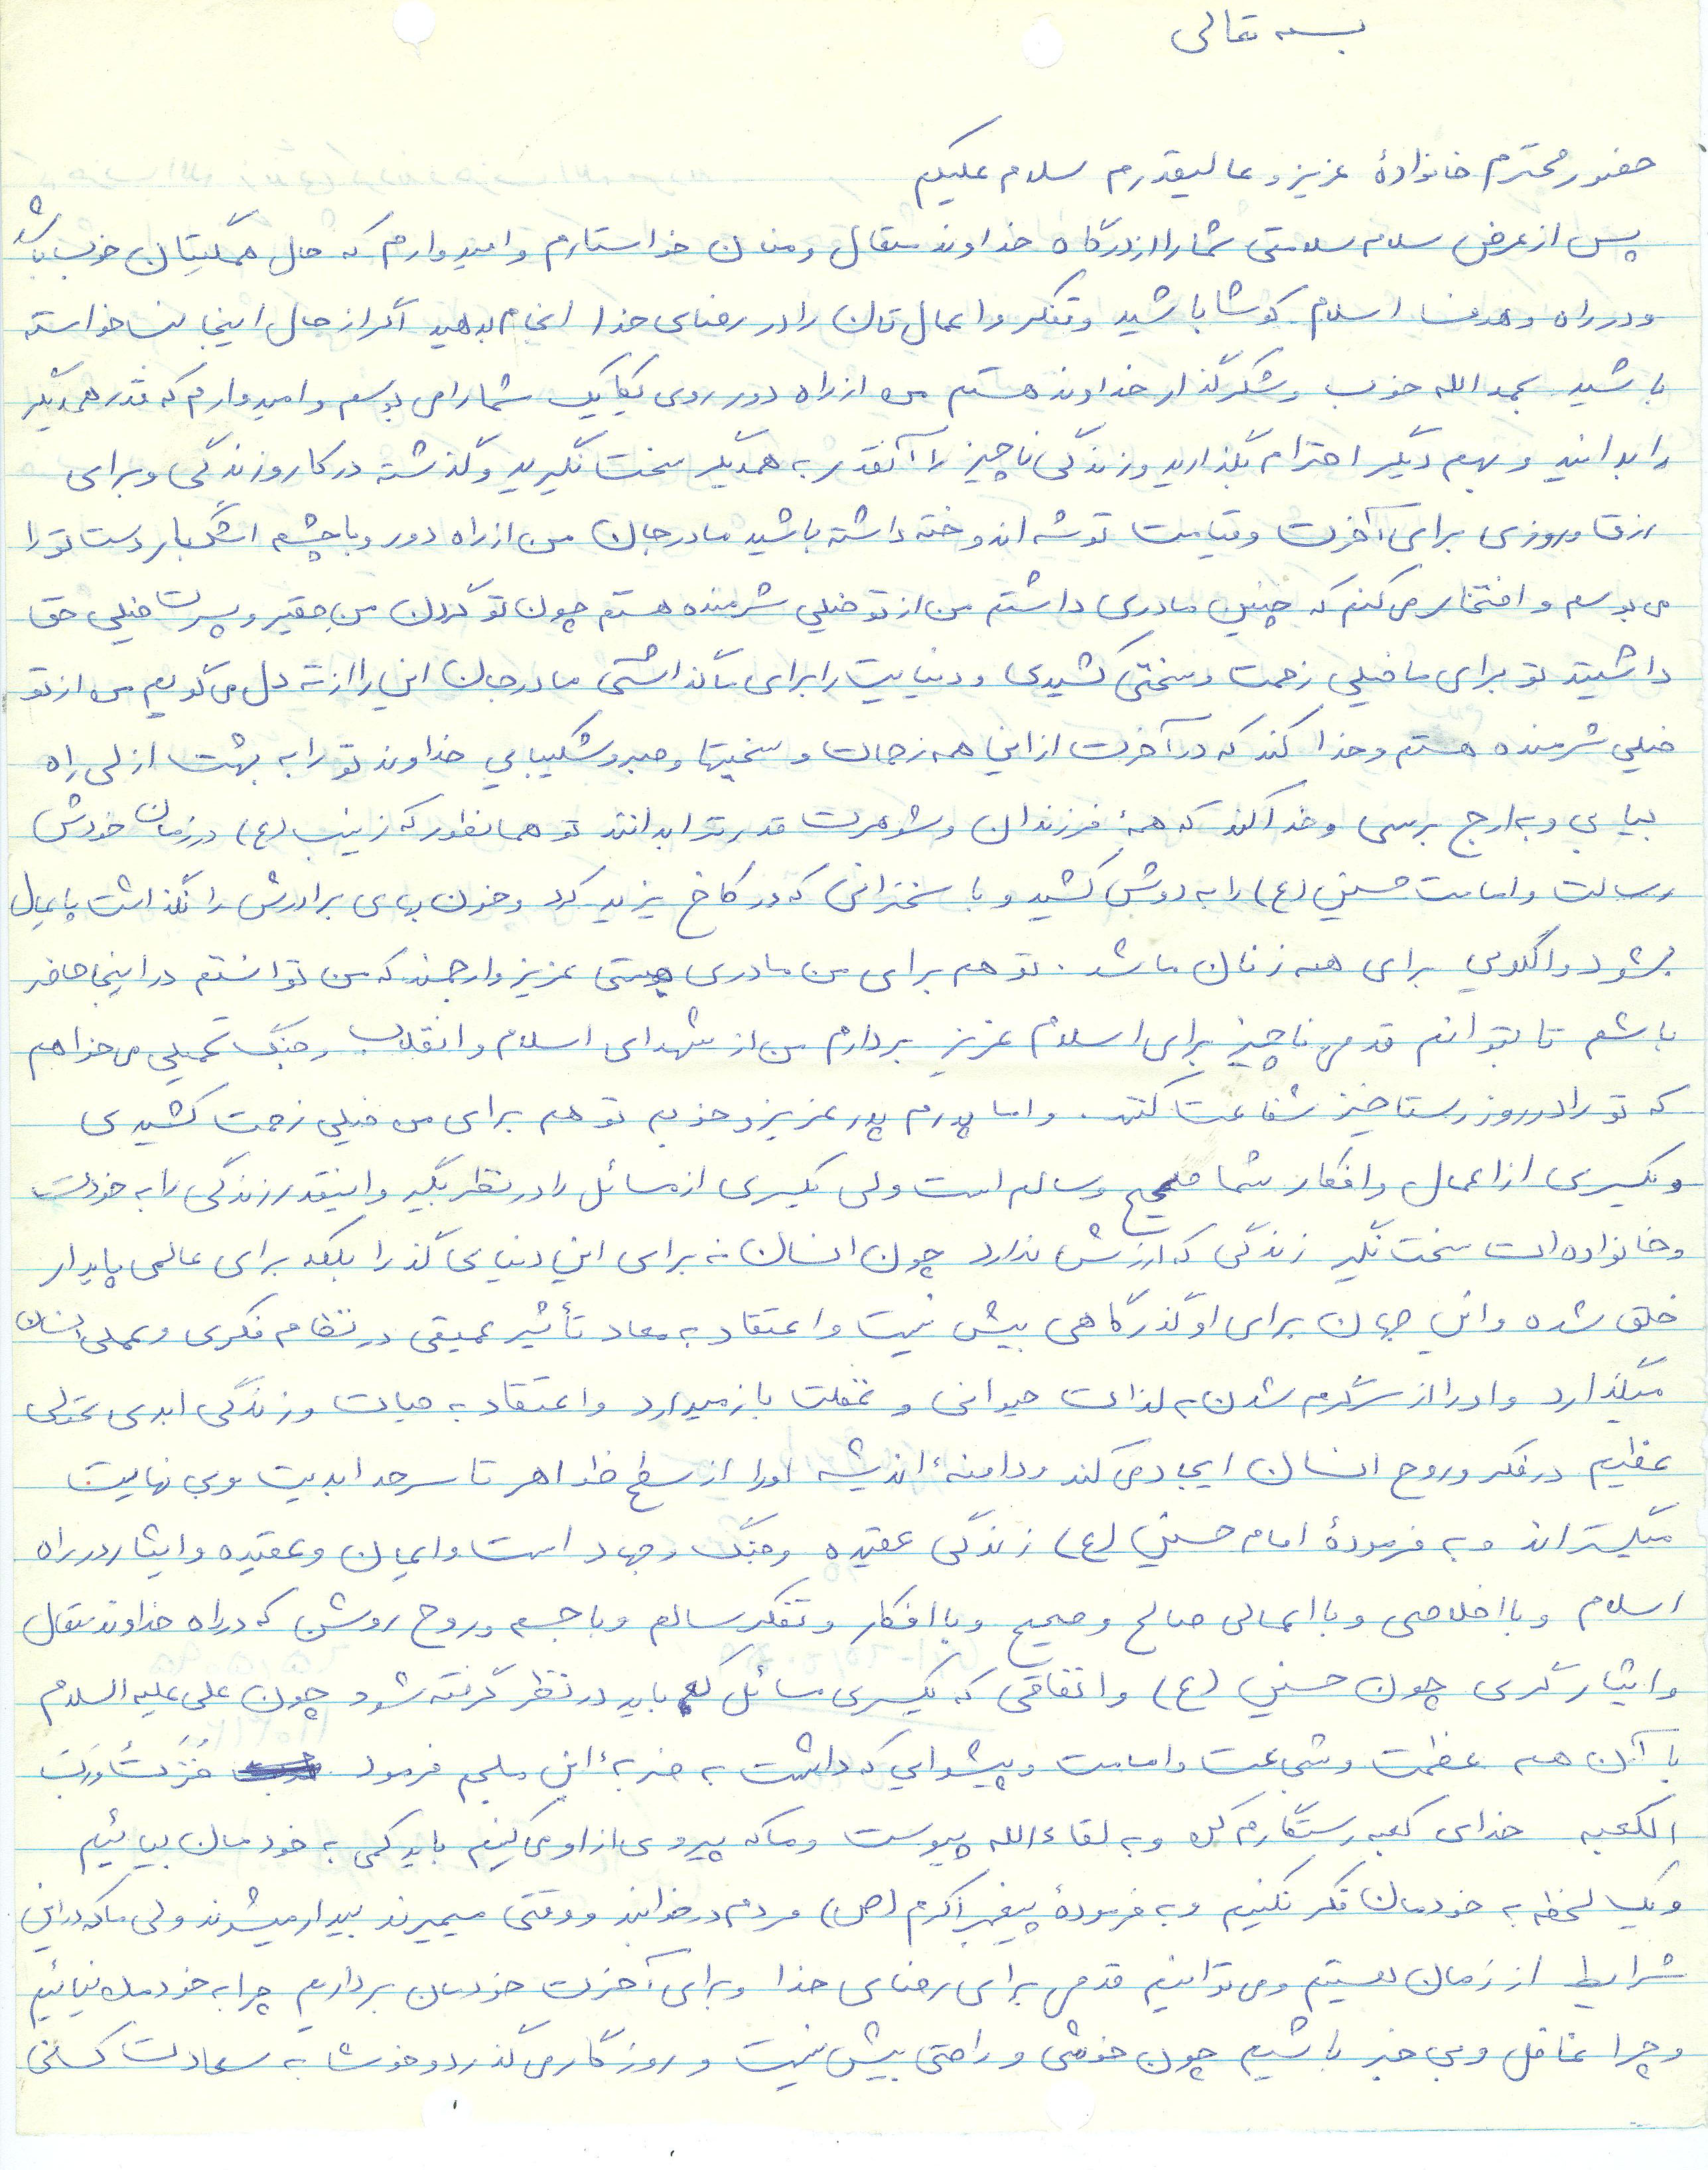 بسمه تعالی
حضور محترم خانوادهٔ عزیز و عالیقدرم سلام علیکم
پس از عرض سلام سلامتی شما را از درگاه خداوند متعال و منان خواستارم و امیدوارم که حال همگیتان خوب باشد
و در راه و هدف اسلام کوشا باشید و تفکر و اعمال تان را در رضای خدا انجام بدهید اگر از حال اینجانب خواسته
باشید بحمد الله خوب و شکرگذار خداوند هستم من از راه دور روی یکایک شما را می بوسم و امیدوارم که قدر همدیگر
را بدانید و بهم دیگر احترام بگذارید و زندگی ناچیز را آنقدر به همدیگر سخت نگیرید و گذشته در کار و زندگی و برای
رزق و روزی برای آخرت و قیامت توشه اندوخته داشته باشید مادر جان من از راه دور و با چشم اشکبار دست تو را
می بوسم و افتخار می کنم که چنین مادری داشتم من از تو خیلی شرمنده هستم چون تو گردن من حقیر و پسرت خیلی حق
داشتید تو برای ما خیلی زحمت و سختی کشیدی و دنیایت را برای ما گذاشتی مادر جان این را از ته دل می گویم من از تو
خیلی شرمنده هستم و خدا کند که در آخرت از این همه زحمات و سختیها و صبر و شکیبایی خداوند تو را به بهشت ازلی راه
بیابی و به ارج برسی و خدا کند که همهٔ فرزندان و شوهرت قدر ترا بدانند تو همانطور که زینب (ع) در زمان خودش
رسالت و امامت حسین (ع) را به دوش کشید و با سخنرانی که در کاخ یزید کرد و خون بهای برادرش را نگذاشت پایمال
بشود و الگویی برای همه زنان ما شد. تو هم برای من مادری هستی عزیز و ارجمند که من توانستم در اینجا حاضر
باشم تا بتوانم قدمی ناچیز برای اسلام عزیز بردارم من از شهدای اسلام و انقلاب و جنگ تحمیلی می خواهم
که تو را در روز رستاخیز شفاعت کنند. و اما پدرم پدر عزیز و خوبم تو هم برای من خیلی زحمت کشیدی
و یکسری از اعمال و افکار شما صحیح و سالم است ولی یکسری از مسائل را در نظر بگیر و اینقدر زندگی را به خودت
و خانواده ات سخت نگیر زندگی که ارزش ندارد چون انسان نه برای این دنیای گذرا بلکه برای عالمی پایدار
خلق شده و این جهان برای او گذرگاهی بیش نیست و اعتقاد به معاد تأثیر عمیقی در نظام فکری و عملی انسان
میگذارد و او را از سرگرم شدن به لذات حیوانی و غفلت باز میدارد و اعتقاد به حیات و زندگی ابدی تحولی
عظیم در فکر و روح انسان ایجاد می کند و دامنهٔ اندیشه او را از سطح ظواهر تا سرحد ابدیت و بی نهایت
میگستراند و به فرمودهٔ امام حسین (ع) زندگی عقیده و جنگ و جهاد است و ایمان و عقیده و ایثار در راه
اسلام و با اخلاصی و با اعمالی صالح و صحیح و با افکار و تفکر سالم و با جسم و روح روشن که در راه خداوند متعال
و ایثارگری چون حسین (ع) و اتفاقی که یکسری مسائل باید در نظر گرفته شود چون علی علیه السلام
با آن همه عظمت و شجاعت و امامت و پیشوایی که داشت به ضربهٔ ابن ملجم فرمود فُزْتُ وَرَبِّ
الکعبه خدای کعبه رستگارم کن و به لقاء الله پیوست و ما که پیروی از او می کنیم باید کمی به خودمان بیائیم
و یک لحظه به خودمان فکر نکنیم و به فرمودهٔ پیغمبر اکرم (ص) مردم در خوابند و وقتی میمیرند بیدار میشوند ولی ما که در این
شرایط از زمان هستیم و می توانیم قدمی برای رضای خدا و برای آخرت خودمان برداریم چرا به خودمان نیائیم
و چرا غافل و بی خبر باشیم چون خوشی و راحتی بیش نیست و روزگار می گذرد و خوشا به سعادت کسانی